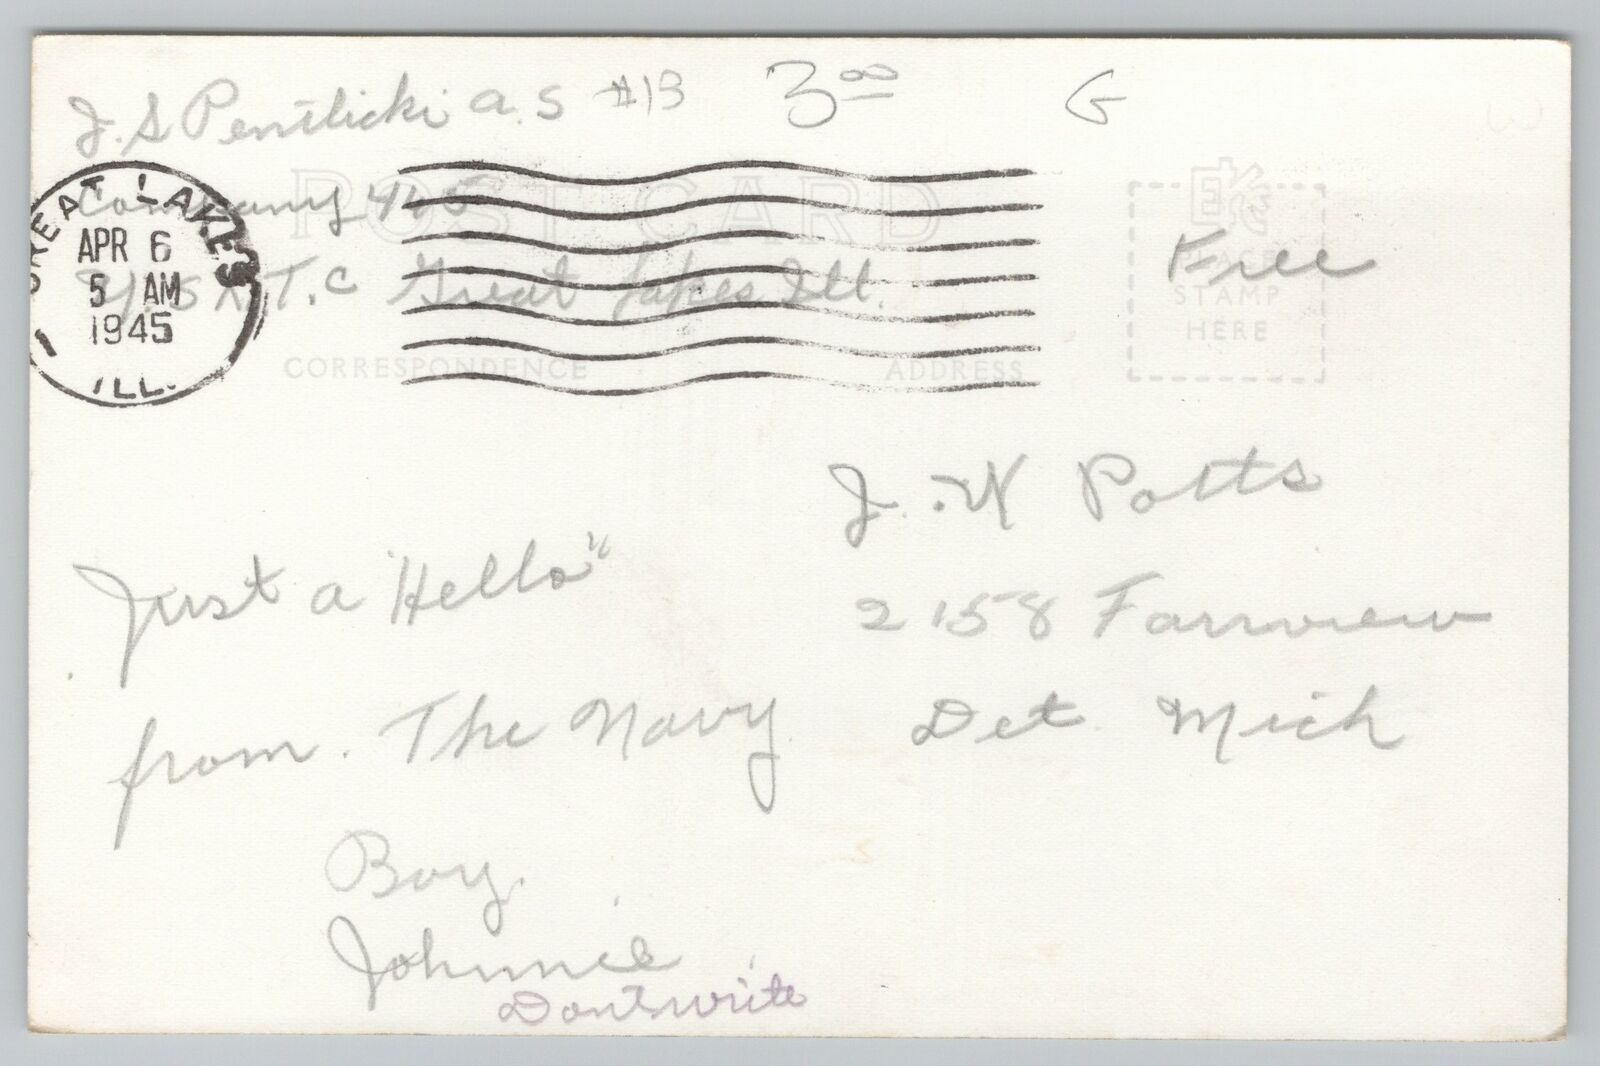 J. S Pentlicki a.s #13 3⁰⁰ G
POST CARD
Company 415
U.S.N.T.C Great Lakes Ill.
GREAT LAKES
APR 6
5 AM
1945
ILL.
PLACE
STAMP
HERE
Free
CORRESPONDENCE ADDRESS
J. W Potts
2158 Fairview
Det. Mich
Just a "Hello"
from. The Navy
Boy.
Johnnie
Dont write